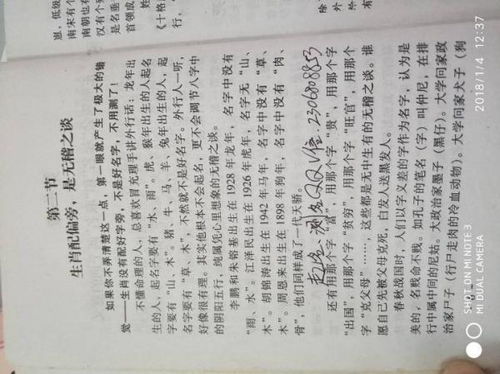 第二节
生肖配偏旁，是无稽之谈
如果你不弄清楚这一点，第一眼就产生了极大的错
觉——生肖没有配好字旁，不是好名字，不用测了！
不懂命理的人，总喜欢冒充理手讲外行话：龙年出
生的人，起名字要有“水、雨”。虎、猴年出生的人起名
字要有“山、木”。猪、牛、马、羊、兔年出生的人，起
名字要有“草、木”，不然就不是好名字。外行人一听，
好像很有理。其实他根本不会起名，更不会调节八字中
的阴阳五行。纯属凭心里想象的无稽之谈。
李鹏和朱镕基出生在1928年龙年，名字中没有
“雨、水”。江泽民出生在1926年虎年，名字无“山、
木”。胡锦涛出生在1942年马年，名字中没有“草、
木”。周恩来出生在1898年狗年，名字中没有“肉、
骨”，他们同样成了一代天骄。
还有用那个字“富”，用那个字“贵”，用那个字
“出国”，用那个字“贫穷”，用那个字“旺官”，用那个
字“克父母”……，这些都是无中生有的无稽之谈。谁
愿自己先被父母克死，白发人送黑发人。
春秋战国时，人们以字义差的字作为名字，认为是
美的，名贱命不贱。如孔子的笔名（字）叫仲尼，在排
行中属中间的尼姑。大政治家墨子（黑仔）。大学问家政
治家尸子（行尸走肉的冷血动物）。大学问家犬子（狗
QQ
230608853
SHOT ON MI NOTE 3
MI DUAL CAMERA
2018/1/4 12:37